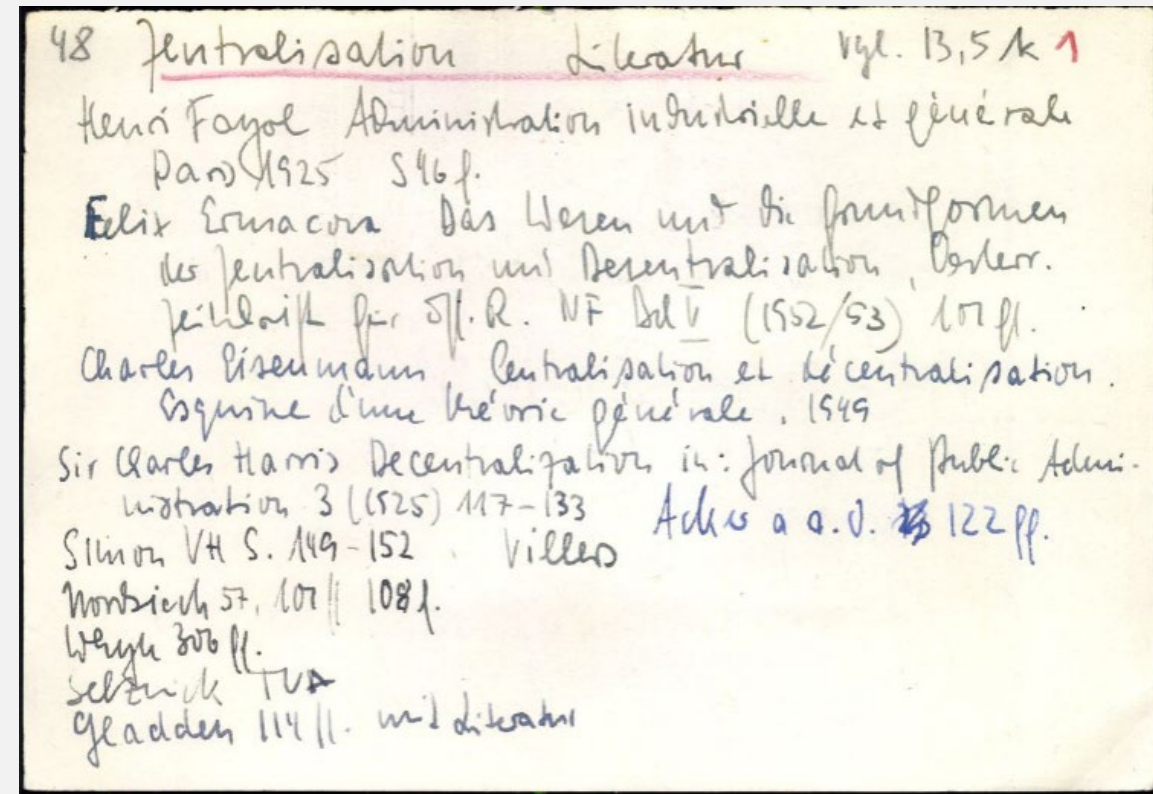 48 Zentralisation Literatur vgl. 13,5 k 1
Henri Fayol Administration industrielle et générale
Paris 1925 S 46 f.
Felix Ermacora Das Wesen und die Grundformen
der Zentralisation und Dezentralisation, Oesterr.
Zeitschrift für öff. R. NF Bd V (1952/53) 101 ff.
Charles Eisenmann Centralisation et décentralisation.
Esquisse d'une théorie générale. 1949
Sir Charles Harris Decentralization in: Journal of Public Admi-
nistration 3 (1925) 117-133 a a.O. 122 ff.
Simon VH S. 149-152. Villers
Nordsieck 57, 101 ff 108 f.
306 ff.
Selznick TVA
Gladden 114 ff. mit Literatur